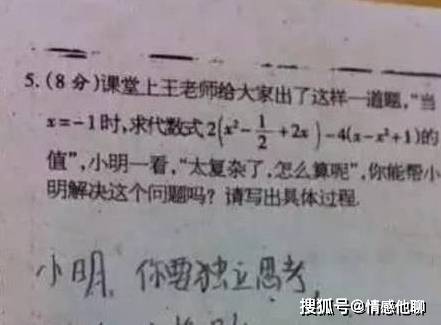 5.(8分)课堂上王老师给大家出了这样一道题,“当
x=-1时,求代数式2(x²-1/2+2x)-4(x-x²+1)的
值”,小明一看,“太复杂了,怎么算呢”,你能帮小
明解决这个问题吗? 请写出具体过程.
小明, 你要独立思考,
搜狐号@情感他聊